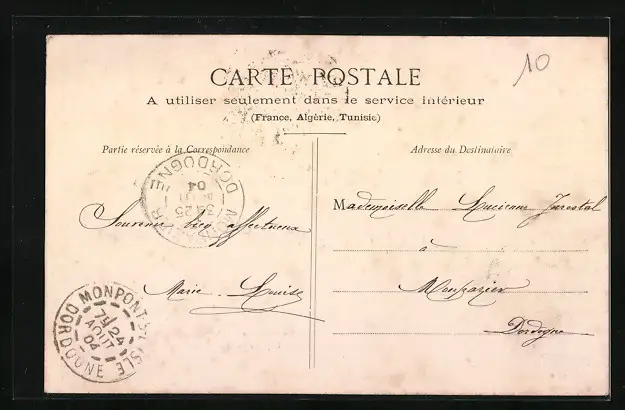 10
CARTE POSTALE
A utiliser seulement dans le service intérieur
(France, Algérie, Tunisie)
Partie réservée à la Correspondance
Adresse du Destinataire
DORDOGNE
25
04
Mademoiselle Lucienne
Souvenir bien affectueux
à
Marie-Louise
Monpazier
Dordogne
MONPONT-S-L'ISLE
7E 24
AOUT
04
DORDOGNE